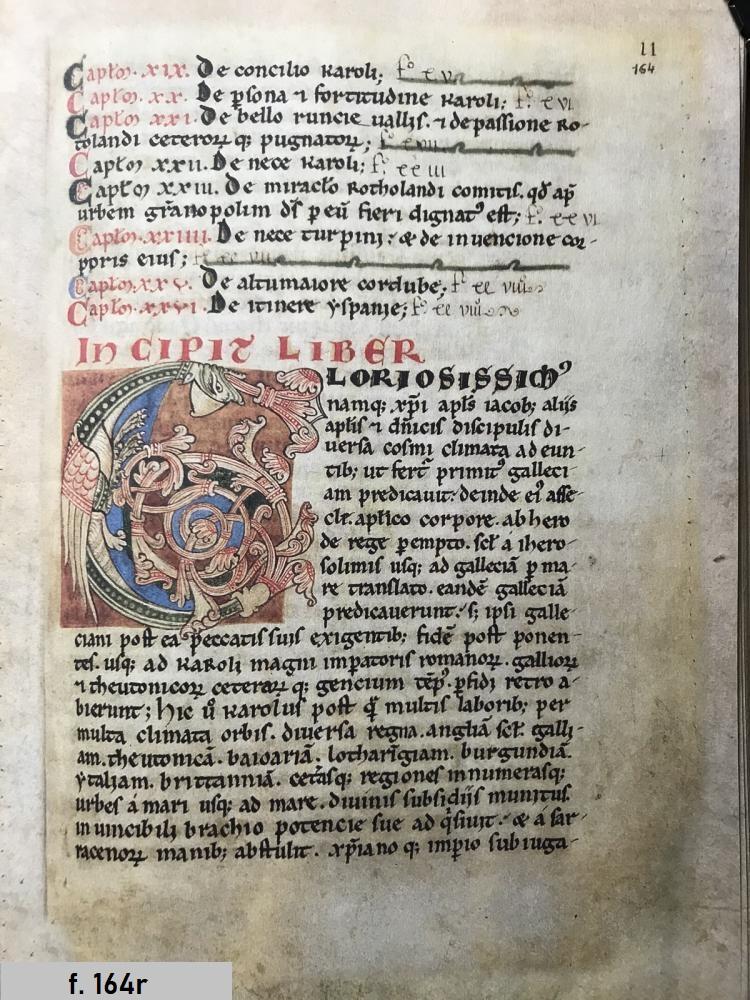 11
164
Capłm. xix. De concilio Karoli;
Capłm. xx. De psona ⁊ fortitudine Karoli; f. xvi
Capłm xxi. De bello runcie uallis. ⁊ de passione Ro-
tolandi ceteroꝝ q; pugnatoꝝ;
Capłm xxii. De nece Karoli; f. xxiii
Capłm xxiii. De miraclo Rotholandi comitis. qđ ap̄
urbem granopolim dſ p eū fieri dignatꝰ est; f. xxvi
Capłm. xxiiii. De nece turpini: & de inuencione cor-
poris eius;
Capłm. xxv. De altumaiore cordube; fº xxviii
Capłm. xxvi. De itinere yspanie; fº xxviii
INCIPIT LIBER
GLORIOSISSIMꝰ
namq; xp̄i apłs iacob; alijs
apłis ⁊ dn̄icis discipulis di-
uersa cosmi climata ad eun-
tib; ut fert̄ primitꝰ galleci-
am predicauit: deinde eiꝰ asse-
clę. apłico corpore. ab hero-
de rege pempto. scł a ihero-
solimis usq; ad galleciā p ma-
re translato. eandē galleciā
predicauerunt: s; ipsi galle-
ciani post ea peccatis suis exigentib; fidē post ponen-
tes. usq; ad Karoli magni impatoris romanoꝝ. gallioꝝ
⁊ theutonicoꝝ ceteraꝝ q; gencium tēpꝰ. pfidi retro a-
bierunt; hic ů Karolus post q̄ multis laborib; per
multa climata orbis. diuersa regna. angliā scł. galli-
am. theutonicā. baioariā. lotharīgiam. burgundiā.
ytaliam. brittanniā. cetasq; regiones innumerasq;
urbes a mari usq; ad mare. diuinis subsidijs munitus.
inuincibili brachio potencie sue ad q̄siuit. & a sar-
racenoꝝ manib; abstulit. xp̄iano q; impio subiuga-
f. 164r